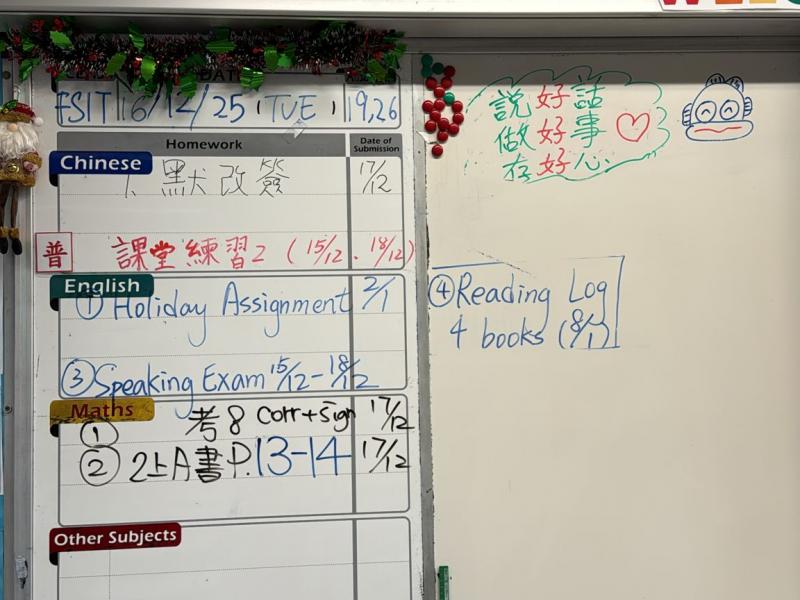 16/12/25 (TUE) 19,26
Homework
Date of Submission
Chinese
1. 默改簽 17/12
普 課堂練習2 (15/12、18/12)
English
① Holiday Assignment 2/1
③ Speaking Exam 15/12-18/12
Maths
① 考8 Corr+Sign 17/12
② 2上A書P.13-14 17/12
Other Subjects
說好話
做好事
存好心
④ Reading Log
4 books (8/1)